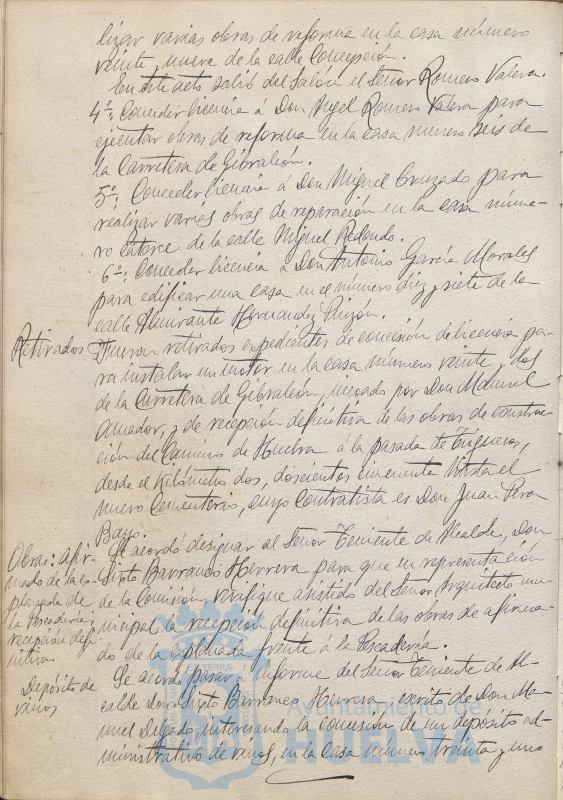 lizar varias obras de reforma en la casa número
veinte y nueve de la calle Concepción.
En este acto salió del Salón el Señor Romero Valera.
4º: Conceder licencia á Don Angel Romero Valera para
ejecutar obras de reforma en la casa número seis de
la Carretera de Gibraleón.
5º: Conceder licencia á Don Miguel Cruzado para
realizar varias obras de reparación en la casa núme-
ro catorce de la calle Miguel Redondo.
6º: Conceder licencia á Don Antonio García Morales
para edificar una casa en el número diez y siete de la
calle Almirante Hernández Pinzón.
Retirados
Fueron retirados expedientes de concesión de licencia pa-
ra instalar un motor en la casa número veinte y dos
de la Carretera de Gibraleón, incoado por Don Manuel
Amador, y de recepción definitiva de las obras de construc-
ción del Camino de Huelva á la pasada de Trigueros,
desde el kilómetro dos, doscientos cincuenta hasta el
nuevo Cementerio, cuyo contratista es Don Juan
Bayo.
Obras: afir-
mado de la ex-
planada de
la Pescadería:
recepción defi-
nitiva.
Se acordó designar al Señor Teniente de Alcalde, Don
Sixto Barranco Herrera para que en representación
de la Comisión verifique asistido del Señor Arquitecto mu-
nicipal la recepción definitiva de las obras de afirma-
do de la explanada frente á la Pescadería.
Depósito de
vinos
Se acordó pasar á informe del Señor Teniente de Al-
calde Don Sixto Barranco Herrera, escrito de Don Ma-
nuel Delgado, interesando la concesión de un depósito ad-
ministrativo de vinos, en la casa número treinta y uno
Ayuntamiento de
HUELVA